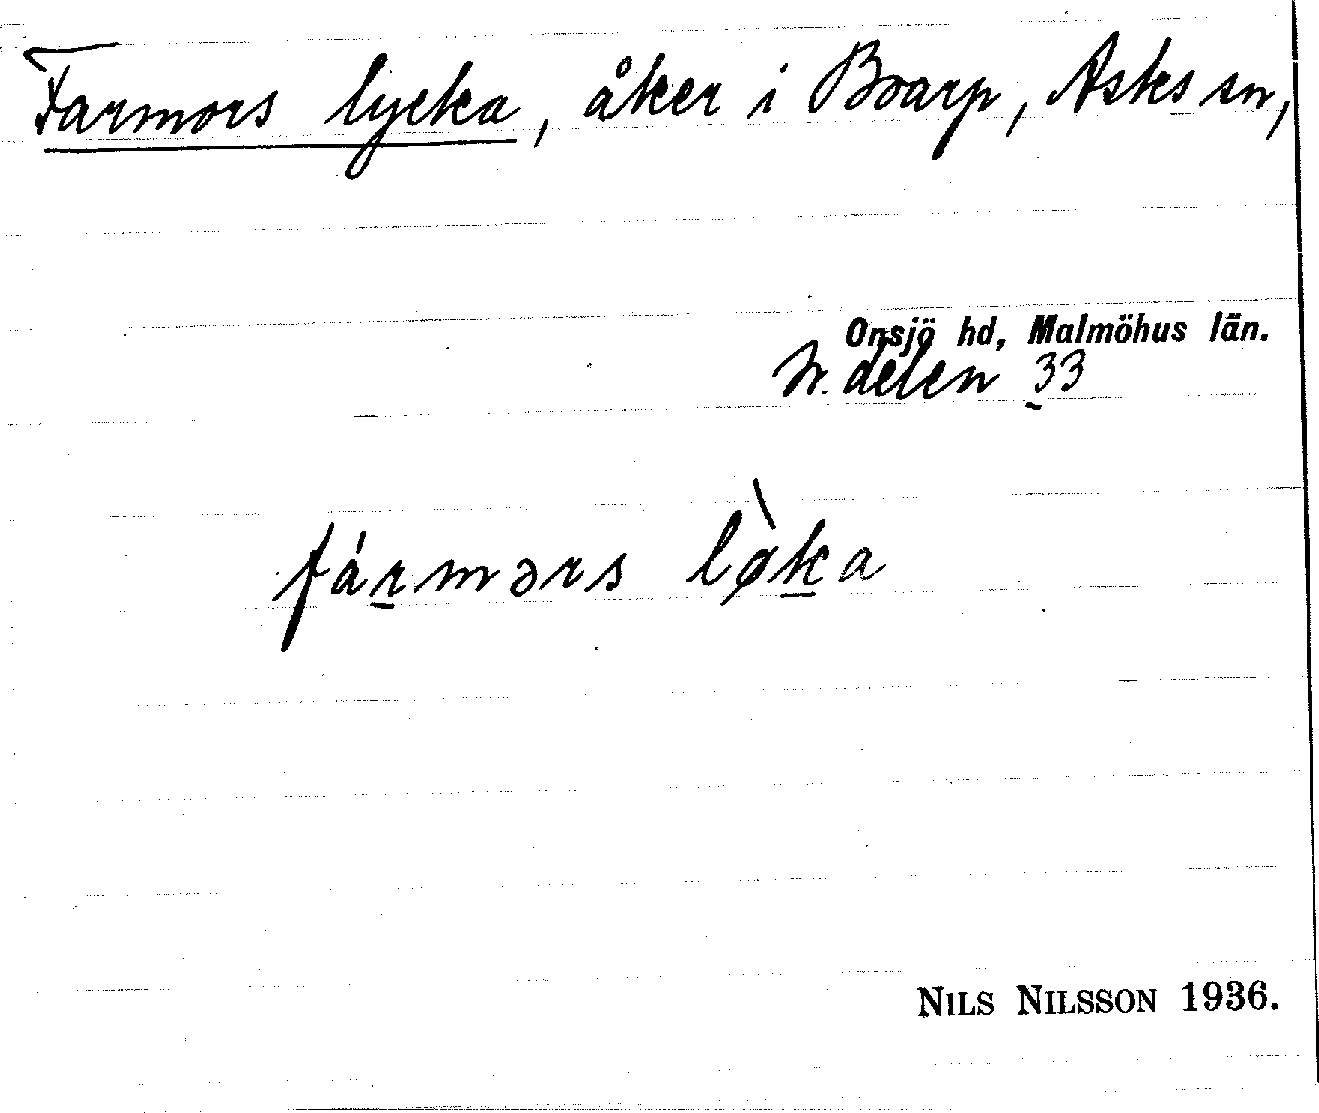 Farmors lycka, åker i Boarp, Asks sn,
Onsjö hd, Malmöhus län.
N. delen 33
fármərs lø̀ka
NILS NILSSON 1936.